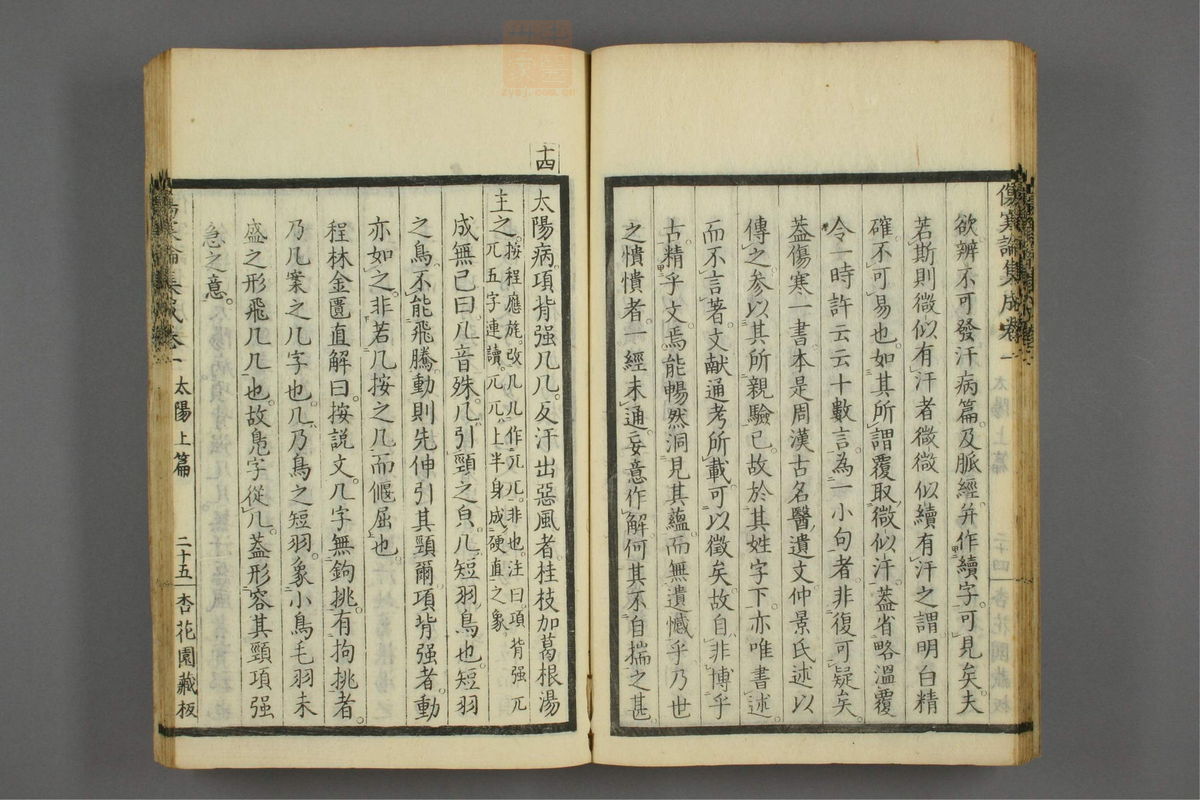 傷寒論集成卷一
欲辨不可發汗病篇及脈經并作續字可見矣夫
若斯則微似有汗者微微似續有汗之謂明白精
確不可易也如其所謂覆取微似汗蓋省略溫覆
令一時許云云十數言為一小句者非復可疑矣
蓋傷寒一書本是周漢古名醫遺文仲景氏述以
傳之參以其所親驗已故於其姓字下亦唯書述
而不言著文獻通考所載可以徵矣故自非博乎
古精乎文焉能暢然洞見其蘊而無遺憾乎乃世
之憒憒者一經未通妄意作解何其不自揣之甚
十四
太陽病項背強几几反汗出惡風者桂枝加葛根湯
主之按程應旄改几几作兀兀非也注曰項背強兀
兀五字連讀兀兀上半身成硬直之象
成無己曰几音殊几引頸之皃几短羽鳥也短羽
之鳥不能飛騰動則先伸引其頸爾項背強者動
亦如之非若几按之几而偃屈也
程林金匱直解曰按說文几字無鉤挑有拘挑者
乃几案之几字也几乃鳥之短羽象小鳥毛羽未
盛之形飛几几也故鳧字從几蓋形容其頸項強
急之意
太陽上篇
二十五
杏花園藏板